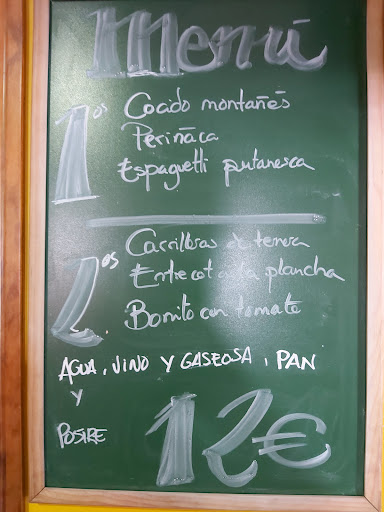 Menú
1os
Cocido montañés
Periñaca
Espaguetti putanesca
2os
Carrilleras de tenera
Entrecot a la plancha
Bonito con tomate
AGUA, VINO Y GASEOSA, PAN
Y
POSTRE
12€